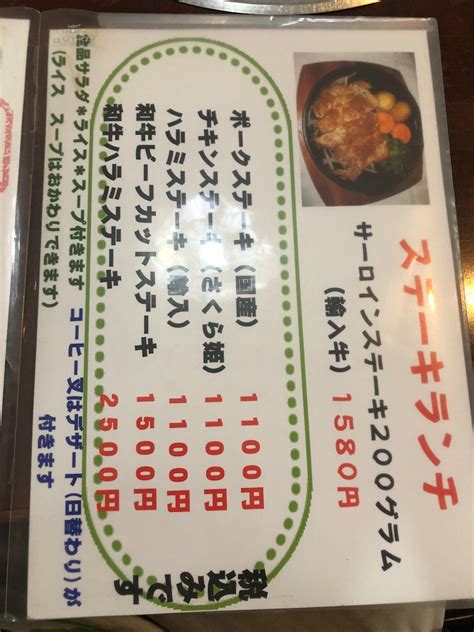 ステーキランチ
サーロインステーキ200グラム
(輸入牛) 1580円
ポークステーキ(国産) 1100円
チキンステーキ(さくら姫) 1100円
ハラミステーキ(輸入) 1100円
和牛ビーフカットステーキ 1500円
和牛ハラミステーキ 2500円
税込みです
サラダ*ライス*スープ付きます コーヒー又はデザート(日替わり)が
(ライス スープはおかわりできます) 付きます